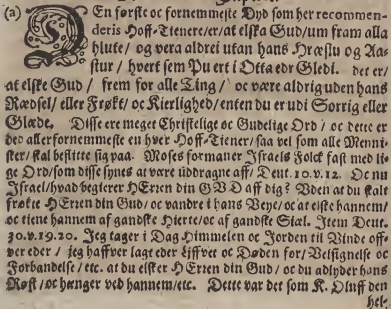 (a) DEn første oc fornemmeste Dyd som her recommen-
deris Hoff-Tienere/er/at elska Gud/um fram alla
hlute/ og vera aldrei utan hans Hræslu og Aa-
stur / hvert sem Pu ert i Otta edr Gledi. det er/
at elske Gud / frem for alle Ting / oc være aldrig uden hans
Rædsel/ eller Frøkt/ oc Kierlighed/enten du er udi Sorrig eller
Glæde. Disse ere meget Christelige oc Gudelige Ord / oc dette er
det allerfornemmeste en hver Hoff-Tiener/ saa vel som alle Menni-
ster/ skal beflitte sig paa. Moses formaner Israels Folck fast med lige
Ord/som disse synes at være uddragne aff/ Deut. 10. v. 12. Oc nu
Israel/hvad begierer HErren din GVD aff dig? Uden at du skal
frøkte HErren din Gud/ oc vandre i hans Veye/ oc at elske hannem/
oc tiene hannem af gandske Hierte/oc af gandske Siæl. Item Deut.
30.v.19.20. Jeg tager i Dag Himmelen oc Jorden til Vinde off-
ver eder / jeg haffver lagt eder Liffvet oc Døden for/ Velsignelse oc
Forbandelse/ etc. at du elsker HErren din Gud/ oc du adlyder hans
Røst / oc hænger ved hannem/etc. Dette var det som K. Oluff den
hel-